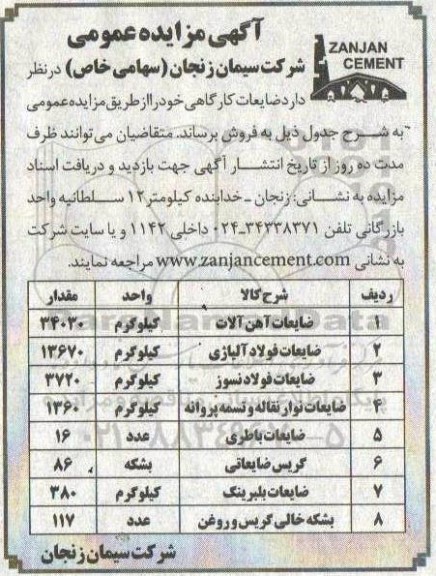 آگهی مزایده عمومی
ZANJAN
CEMENT
شرکت سیمان زنجان (سهامی خاص) در نظر
دارد ضایعات کارگاهی خود را از طریق مزایده عمومی
به شرح جدول ذیل به فروش برساند. متقاضیان می توانند ظرف
مدت ده روز از تاریخ انتشار آگهی جهت بازدید و دریافت اسناد
مزایده به نشانی: زنجان - خدابنده کیلومتر ۱۲ سلطانیه واحد
بازرگانی تلفن ۳۴۳۳۸۳۷۱-۰۲۴ داخلی ۱۱۴۲ و یا سایت شرکت
به نشانی www.zanjancement.com مراجعه نمایند.
ردیف شرح کالا واحد مقدار
۱ ضایعات آهن آلات کیلوگرم ۳۴۰۳۰
۲ ضایعات فولاد آلیاژی کیلوگرم ۱۳۶۷۰
۳ ضایعات فولاد نسوز کیلوگرم ۳۷۲۰
۴ ضایعات نوار نقاله و تسمه پروانه کیلوگرم ۱۳۶۰
۵ ضایعات باطری عدد ۱۶
۶ گریس ضایعاتی بشکه ۸۶
۷ ضایعات بلبرینگ کیلوگرم ۳۸۰
۸ بشکه خالی گریس و روغن عدد ۱۱۷
شرکت سیمان زنجان